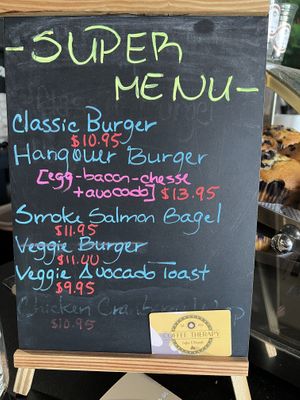 -SUPER
MENU-
Classic Burger
$10.95
Hangover Burger
[egg-bacon-chesse
+avocado] $13.95
Smoke Salmon Bagel
$11.95
Veggie Burger
$11.40
Veggie Avocado Toast
$9.95
Chicken Cranberry Wrap
$10.95
COFFEE THERAPY